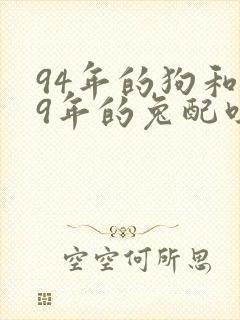 94年的狗和
9年的兔配
空空何所思